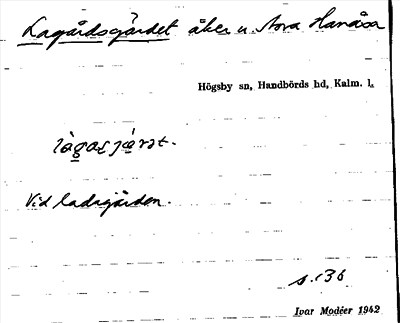 Lagårdsgärdet åker u. Stora Hanåsa
Högsby sn, Handbörds hd, Kalm. l.
Vid ladugården.
s. 136
Ivar Modéer 1942